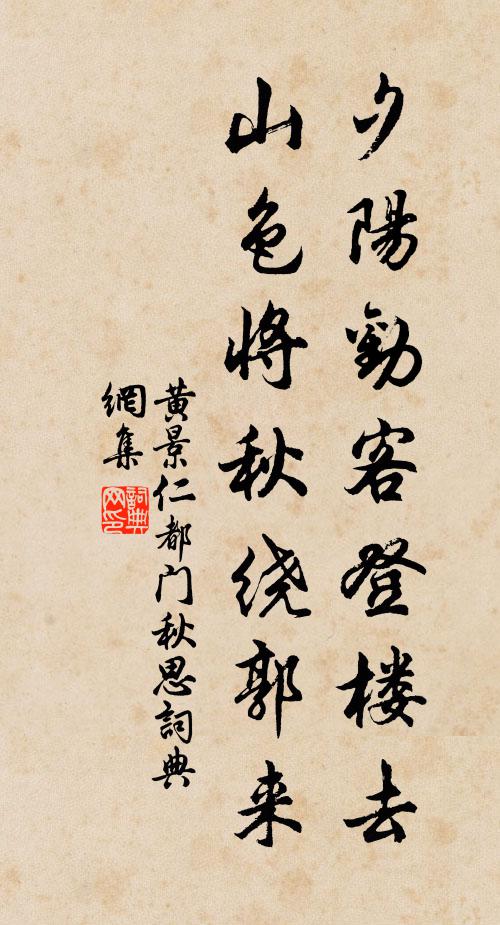 夕陽勸客登楼去
山色将秋绕郭来
黄景仁都门秋思詞典
網集
詞典
网印